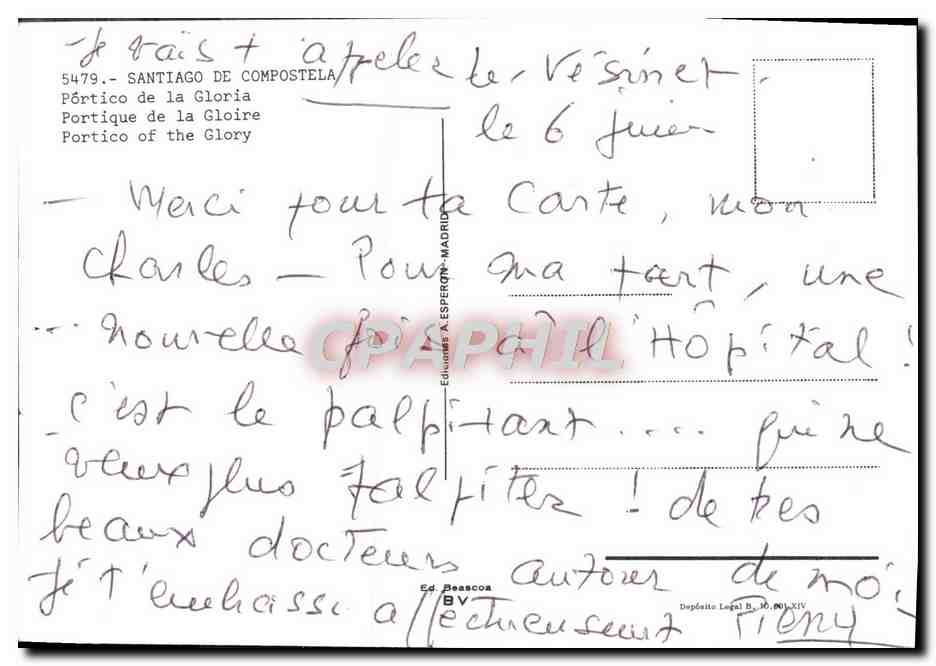 - Je vais t'appeler Le Vésinet,
5479.- SANTIAGO DE COMPOSTELA
Pórtico de la Gloria
Portique de la Gloire
Portico of the Glory
le 6 juin
- Merci pour ta carte, mon
Charles - Pour ma part, une
... nouvelle fois à l'Hôpital !
c'est le palpitant .... qui ne
veux plus palpiter ! de tres
beaux docteurs autour de moi
Je t'embrasse affectueusement
Ediciones A. ESPERON - MADRID
CPAPHIL
Ed. Beascoa
BV
Depósito Legal B. 10.001-XIV